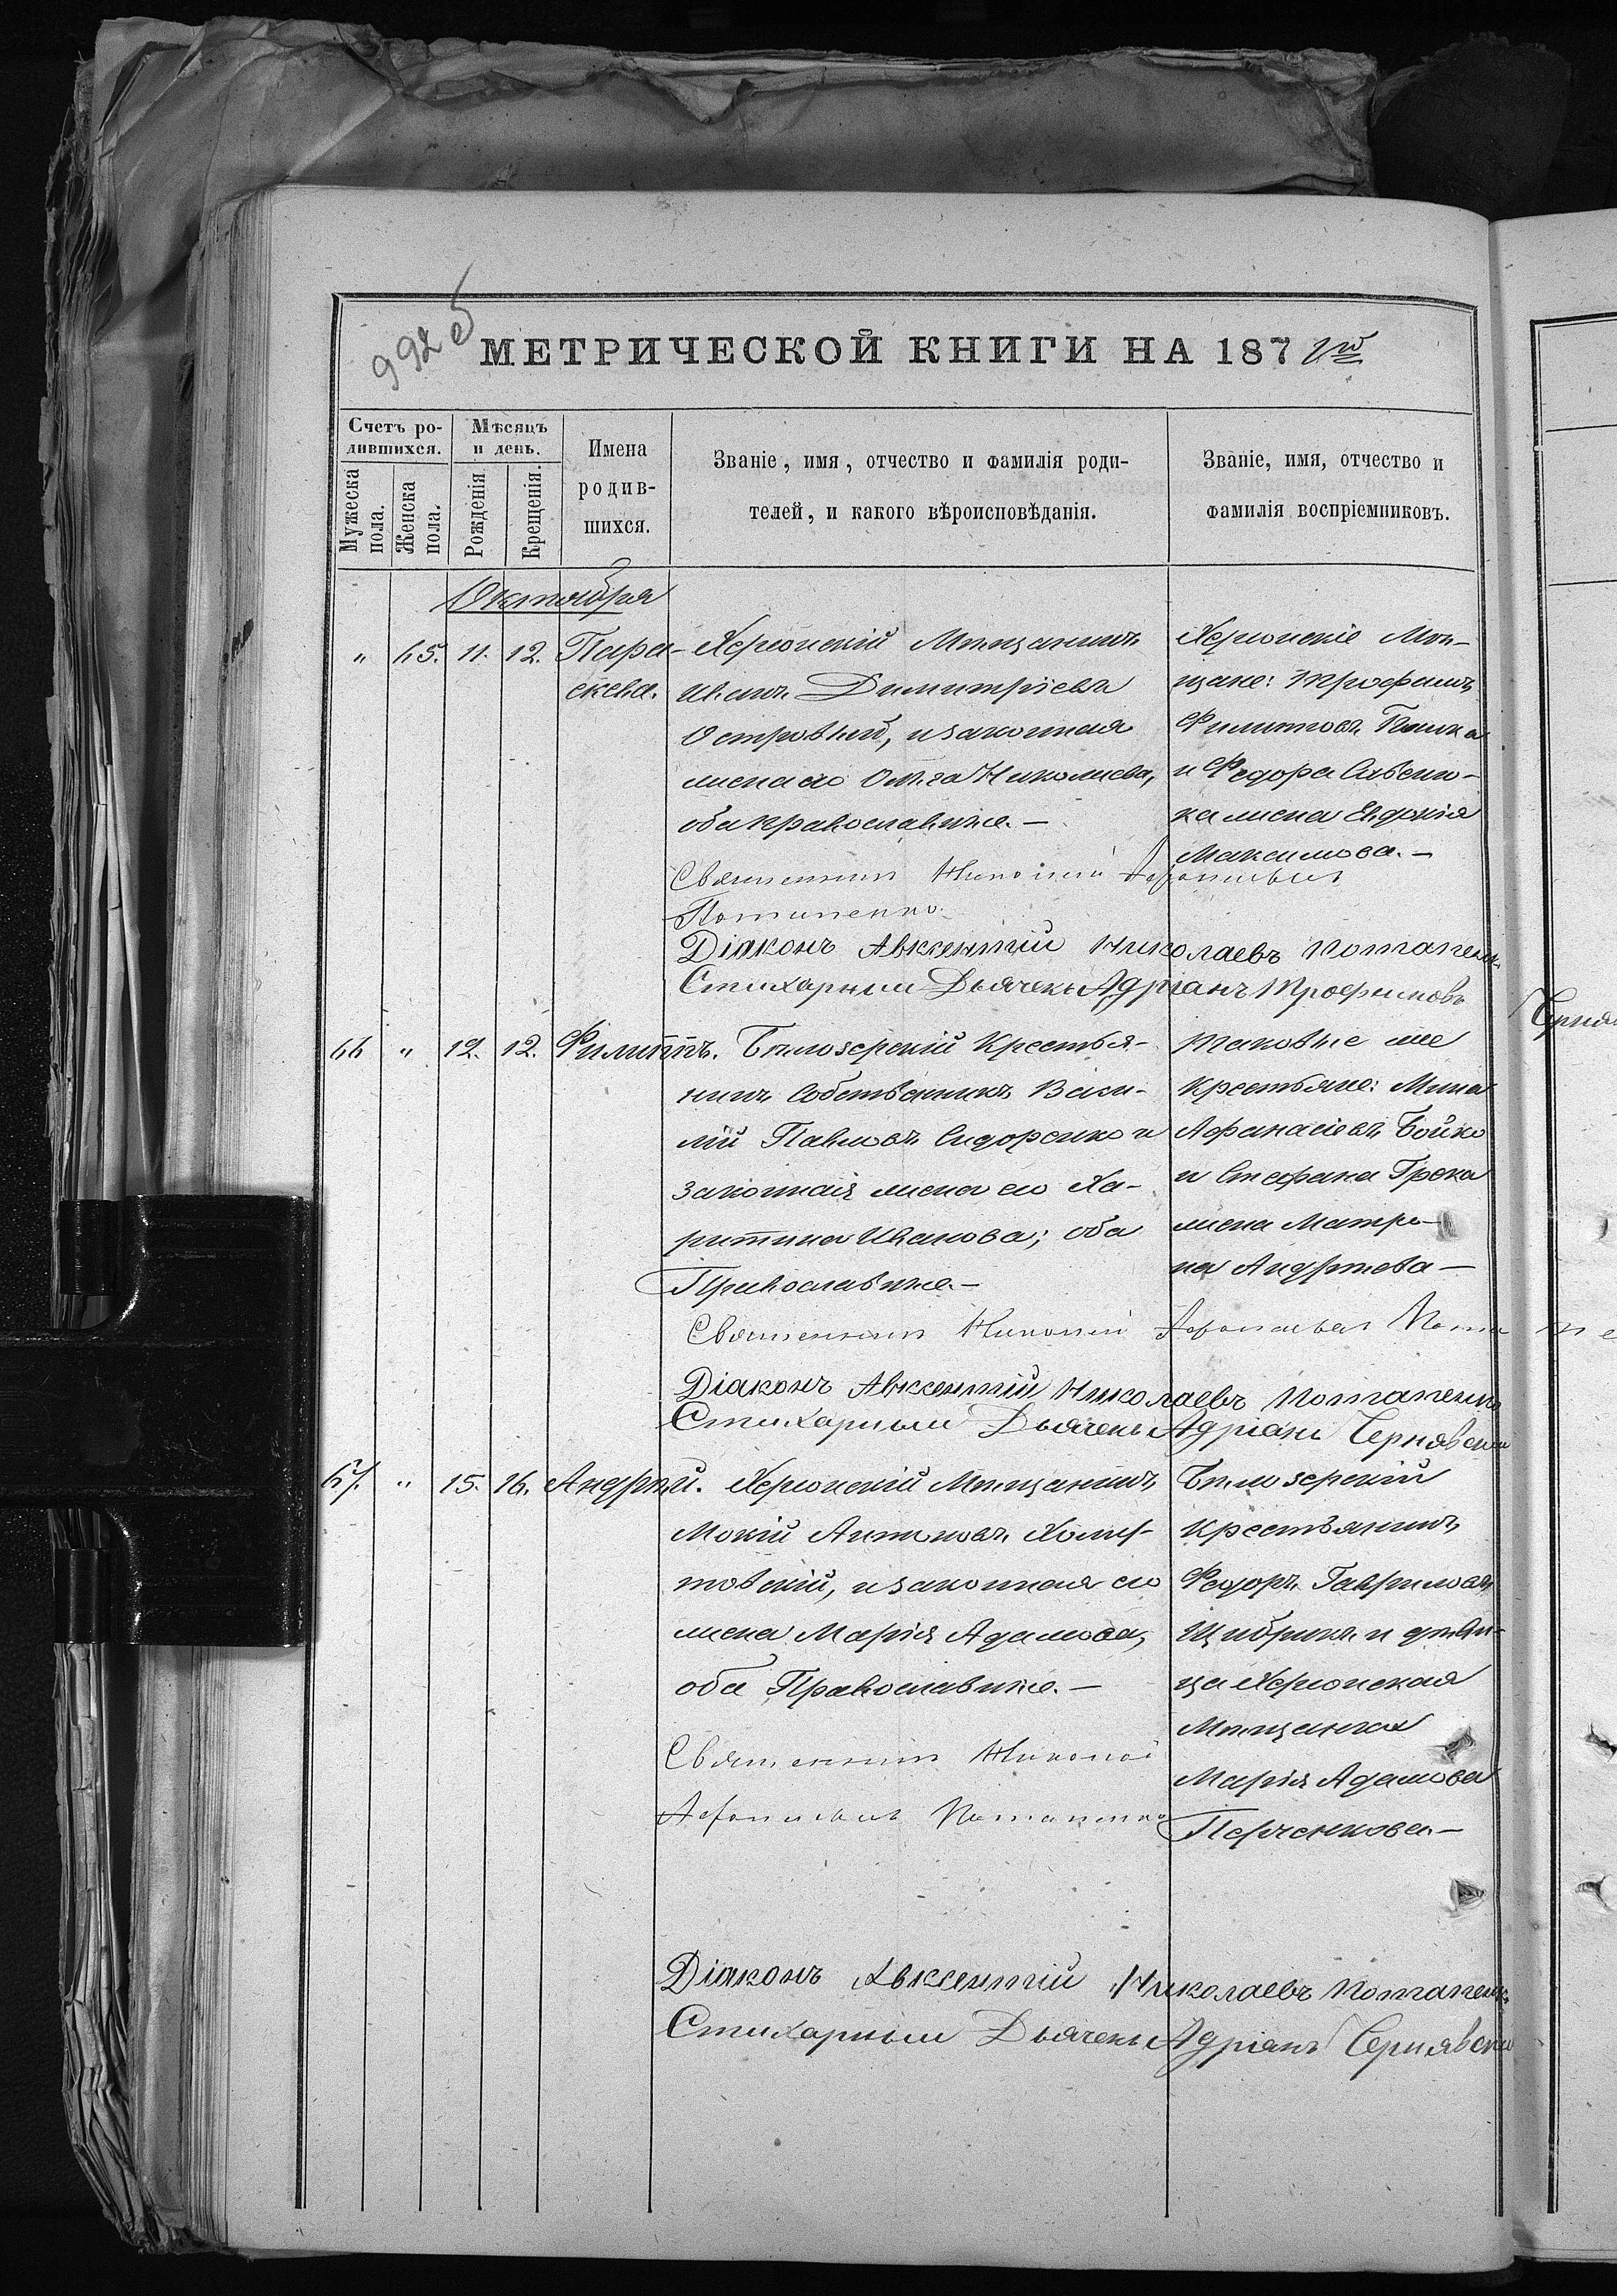 992 об
МЕТРИЧЕСКОЙ КНИГИ НА 187
Счетъ ро-
дившихся.
Мѣсяцъ
и день.
Мужеска
пола.
Женска
пола.
Рожденія
Крещенія.
Имена
родив-
шихся.
Званіе, имя, отчество и фамилія роди-
телей, и какого вѣроисповѣданія.
Званіе, имя, отчество и
фамилія воспріемниковъ.
Октября
" 65. 11. 12. Пара-
скева.
Херсонскій Мѣщанинъ
Иванъ Димитріевъ
Островный, и законная
жена его Ольга Николаева,
оба православные. —
Херсонскіе Мѣ-
щане: Трофимъ
Филиповъ
и Федора Савенко-
ва жена Евдокія
Максимова. —
Священникъ Николай Афонасьевъ
Потапенко.
Діаконъ Авксентій Николаевъ Потапенк
Стихарный Дьячекъ Адріанъ Трофимовъ
Черняв
66 " 12. 12. Филиппъ.
Бѣлозерскій Крестья-
нинъ Собственникъ Васи-
лій Павловъ Сидоренко и
законная жена его Ха-
ритина Иванова; оба
Православные. —
Таковые же
Крестьяне: Мина
Афанасіевъ Бойко
и Стефана Грека
жена Матро-
на Андрѣева —
Священникъ Николай Афонасьевъ Пота пе
Діаконъ Авксентій Николаевъ Потапенко
Стихарный Дьячекъ Адріанъ Чернявски
67. " 15. 16. Андрѣй.
Херсонскій Мѣщанинъ
Мокій Антоновъ Холму-
товскій, и законная его
жена Марія Адамова,
оба Православные. —
Бѣлозерскій
Крестьянинъ
Федоръ Гавриловъ
Щибрикъ и дѣви-
ца Херсонская
Мѣщанка
Марія Адамова
Перченкова —
Священникъ Николай
Афонасьевъ Потапенко
Діаконъ Авксентій Николаевъ Потапенк
Стихарный Дьячекъ Адріанъ Чернявски